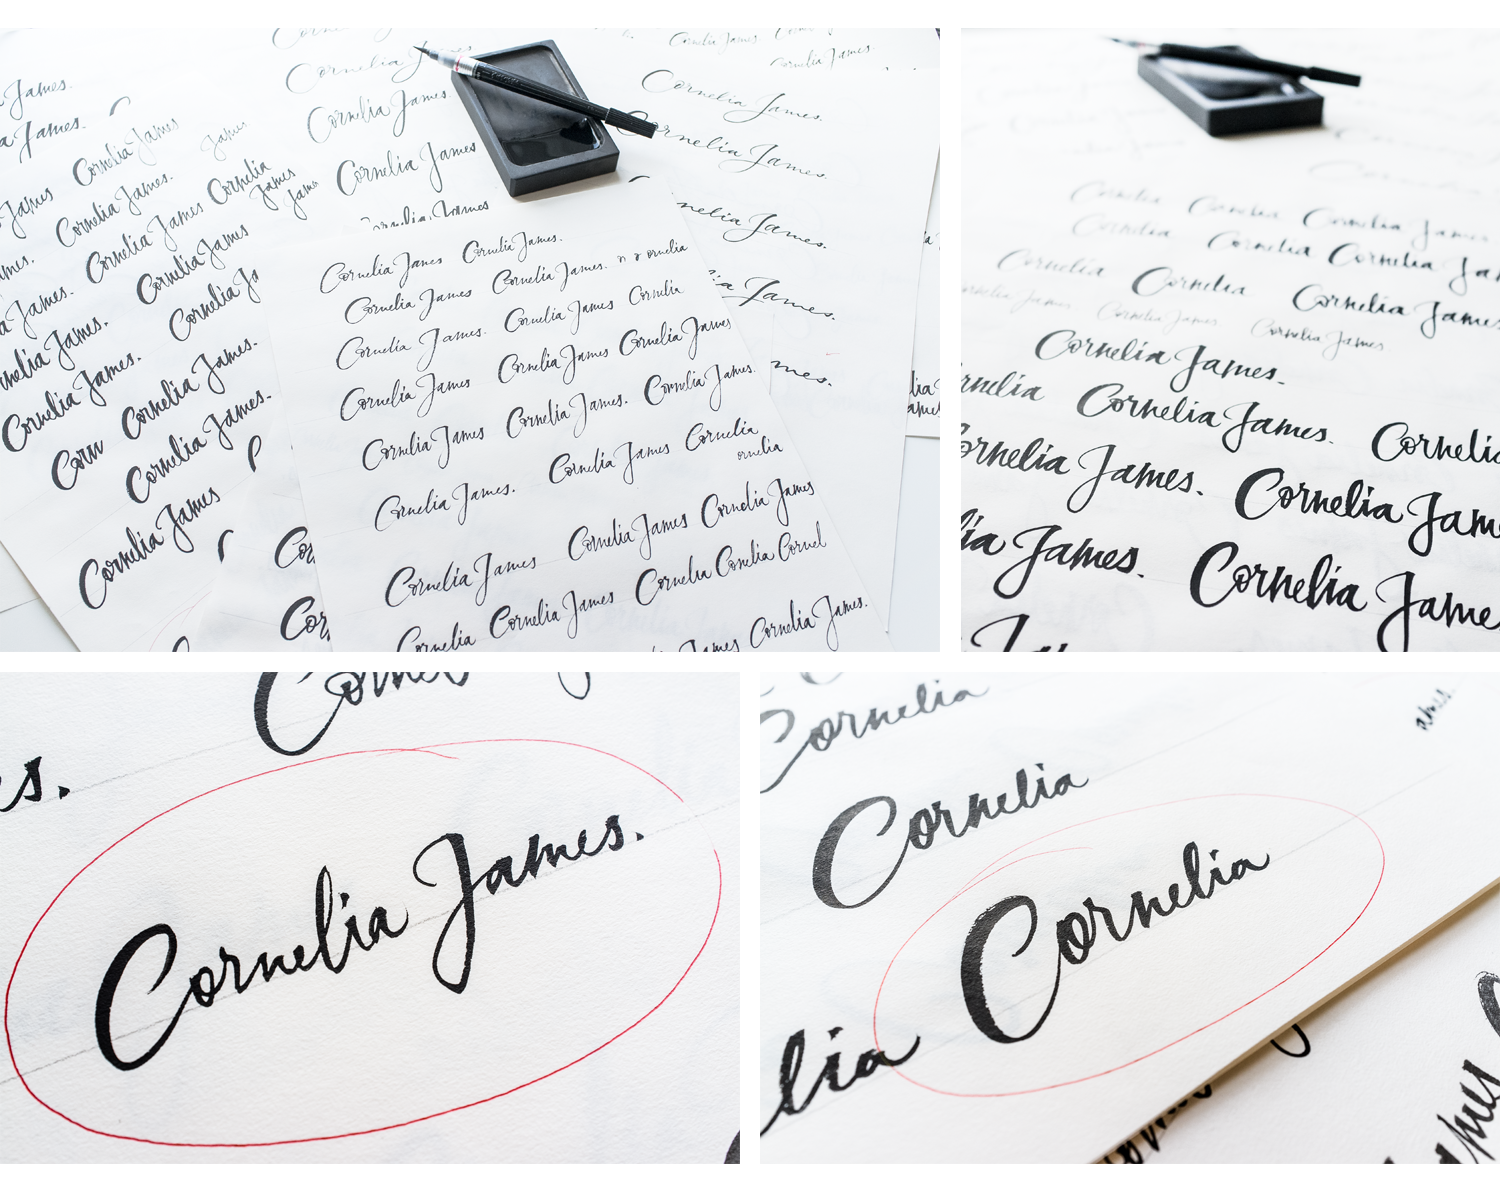 Cornelia James
Cornelia James.
James.
James.
Cornelia James
James
Cornelia James.
Cornelia
James
Cornelia James
Cornelia James
Cornelia James.
Cornelia James
Cornelia James.
Cornelia James.
Cornelia James.
Cornelia James.
Corn
Cornelia James.
Cornelia James
Cornelia James
Cornelia James.
Cornelia James
Cornelia James. n r ornelia
Cornelia James.
Cornelia James
Cornelia
Cornelia James
Cornelia James
Cornelia James
Cornelia James
Cornelia James.
Cornelia James.
Cornelia James.
Cornelia James
Cornelia
ornelia
Cornelia James
Cornelia James
Cornelia James
Cornelia James
Cornelia Conelia Cornel
Cornelia
Cornelia James
Cornelia James.
Cornelia James.
Cornelia James.
James.
James.
mes.
Cornelia
Cornelia
Cornelia James
Cornelia
Cornelia
Cornelia Jam
Cornelia
Cornelia
Cornelia James
Cornelia James
Cornelia James
Cornelia James.
rnelia
Cornelia James.
Cornelia
Cornelia James.
Cornelia Jam
lia James.
Cornelia Jame
es.
Cornelia James.
Cornelia
Cornelia
Cornelia
lia
ames.